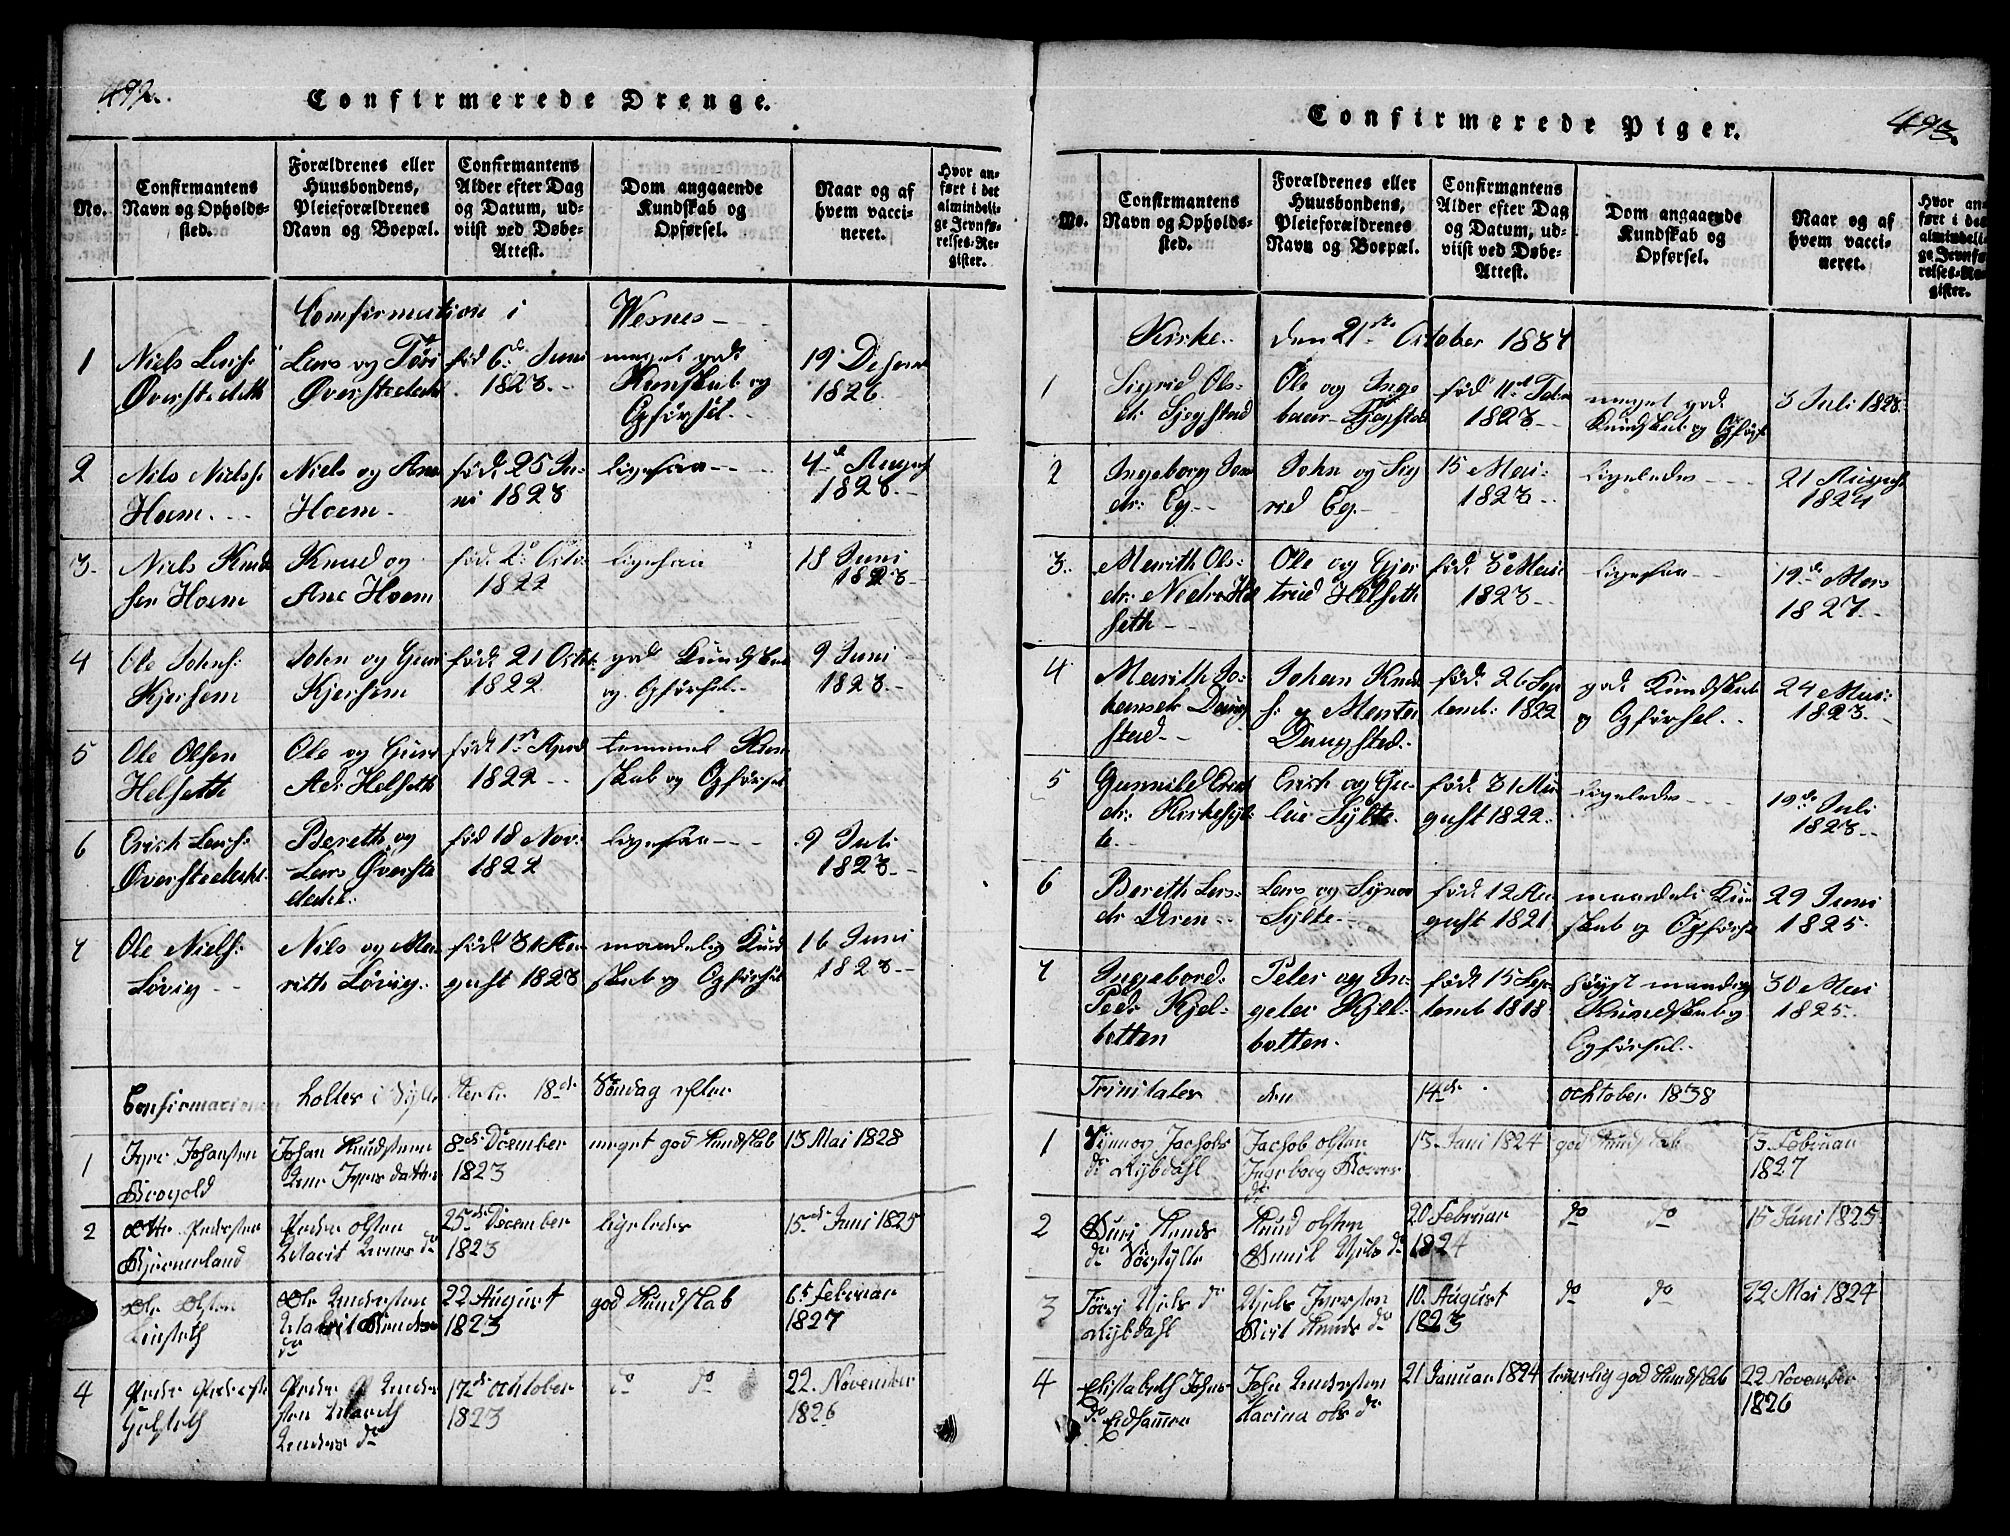 492.
Confirmerede Drenge.
No.
Confirmantens
Navn og Opholds-
sted.
Forældrenes eller
Huusbondens,
Pleieforældrenes
Navn og Boepæl.
Confirmantens
Alder efter Dag
og Datum, ud-
viist ved Døbe-
Attest.
Dom angaaende
Kundskab og
Opførsel.
Naar og af
hvem vacci-
neret.
Hvor an-
ført i det
almindeli-
ge Jevnfø-
relses-Re-
gister.
Confirmation i Wesnes
1
Niels Larss:
Øverstedeth
Lars og
Øverstedeth
fød 6. Juni
1823.
meget god
Kundskab og
Opførsel.
19. Desem
1826
2
Nils Nielss.
Hoem.
Niels og Ane
Hoem.
fød. 25 Ju-
ni 1823
ligesaa
4de August
1823.
3.
Niels Knud
sen Hoem
Knud og
Ane Hoem
fød. 2. Octo
1822
ligesaa
18 Juni
1823
4
Ole Johns:
Kjersem
John og Guri
Kjersem
fød. 21 Octob.
1822
god Kundskab
og Opførsel.
9 Juni
1823.
5
Ole Olsen
Helseth
Ole og Guri
Helseth
fød. 1ste April
1822
temmel Kun
skab og Opførsel
6
Erich Larss:
Øverstedeth
Bereth og
Lars Øverste
deth:
fød 18 Nov:
1822
ligesaa
9 Juli
1823.
7
Ole Niels:
Løvig
Nils og Ma
rith Løvig.
fød 31 Au
gust 1823
maadelig Kund
skab og Opførsel
16 Juni
1823.
Confirmationen holtes i Sylte Kerke 18de Søndag efter
1
Johansen
Johan Knudsen
8de December
1823
meget god Kundskab
13 Mai 1828
2
Pedersen
Bjørnerland
Peder Olsen
Marit
25de December
1823
ligeledes
15de Juni 1825
Ole Olsen
Ole Andersen
22 August
1823
god Kundskab
Februar
1827
4
Peder
Peder
Anders do
17de October
1823
do do
22. November
1826
Confirmerede Piger.
493.
No.
Confirmantens
Navn og Opholds-
sted.
Forældrenes eller
Huusbondens,
Pleieforældrenes
Navn og Boepæl.
Confirmantens
Alder efter Dag
og Datum, ud-
viist ved Døbe-
Attest.
Dom angaaende
Kundskab og
Opførsel.
Naar og af
hvem vacci-
neret.
Hvor an-
ført i det
almindeli-
ge Jevnfø-
relses-Re-
gister.
Kirke. den 21de October
1
Sigrid Ols-
dr.
Ole og Inge
baar
1823
meget god
Kundskab og Opførsel
3 Juli 1828.
2
Ingeborg Jons
dr: Eg
John og Sig
rid Eg.
15 Mai
1823
ligeledes
21 August
1824
3.
Marith Ols-
dr. Nedre Hel
seth
Ole og Gjer
trud Helseth
fød. 3 Mai
1823
ligesaa
19de Mars
1827.
4
Marith Jo-
hansdr Daug
stad.
Johan Knud
s: og Marte
Daugstad.
fød. 26 Sep
temb: 1822
god Kundskab
og Opførsel.
24 Mai
1823.
5
Gunnild Erich
dr. Kirkesylt
e.
Erich og
Sylte.
fød. 31 Au
gust 1822.
ligeledes
19de Juli
1823.
6
Berith Lars-
dr
Lars og Synov
Sylte
fød 12 Au
gust 1821
maadeli Kun
skab og Opførsel
29 Juni
1825.
7
Ingebord.
Pedr Kjel-
botten
Peter og In-
Kjel-
botten.
fød. 15 Sep
temb 1818
høyst maadelig
Kundskab og
Opførsel.
30 Mai
1825.
Trinitates den 14de ochtober 1838
1
Synnov Jachobs
do Rybdahl
Jachob Olsen
Ingeborg
do
13. Juni 1824
god Kundskab
13 Februar
1827
2
Guri Knuds
do
Knud Olsen
Gunil Niels do
20 Februar
1824
do do
15 Juni 1825
3
Niels do
Rybdahl
Niels Iversen
Berit Knuds do
10. August
1823
do do
22 Mai 1824
4
Elisabeth Johns
do Eidhammer
John Andersen
Karina Ols do
21 Januar 1824
god Kundskab
22 November
1826